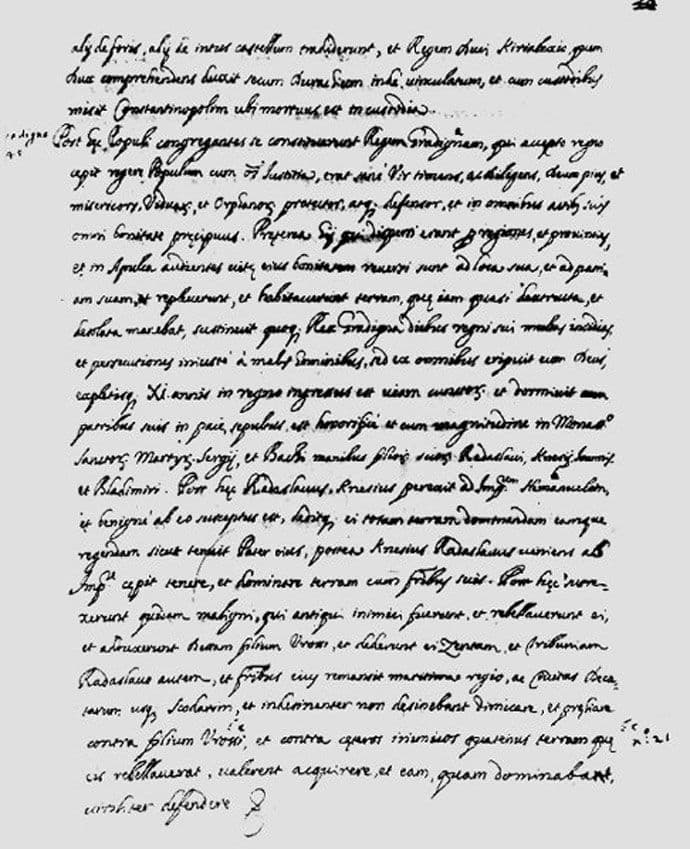 alij de foris, alij de intus castellum tradiderunt, et Regem Duci Kiriалexio, quem
dux comprehendens duxit secum inde vinculatum, et cum custodibus
misit Constantinopolim ubi mortuus est in custodia.
Post hęc Populi congregantes se constituerunt Regem Gradignam, qui accepto regno
cepit regere Populum cum oi Iustitia, erat vir timens, ac diligens, deum pius, et
misericors, Viduarz, et Orphanorz protector, atq; defensor, et in omnibus suis
omni bonitate pręcipuus. Pręterea hij qui dispersi erant p regiones, et provincias,
et in Apulea audientes ejus bonitatem reversi sunt ad loca sua, et ad patri-
am suam, et repleverunt, et habitaverunt terram, quę iam quasi destructa, et
desolata manebat, sustinuit quoq; Rex Gradigna diebus regni sui multas insidias,
et persecutiones iniuste à malis hominibus, sed ex omnibus eripuit eum Deus,
expletisq; XI. annis in regno ingressus est viam cunctorz et dormivit cum
patribus suis in pace, sepultus est honorifice et cum magnitudine in Monaro
Sanctorz Martyrz Sergij, et Bachi manibus filiorz suorz Radaslavi,
et Bladimiri. Post hęc Radaslavus Knesius perexit ad Imprem
et benigne ab eo susceptus est, deditq; ei totam terram dominandam eamque
regendam sicut tenuit Pater eius, postea Knesius Radaslavus veniens ab
Impre cepit tenere, et dominare terram cum fribus suis. Post hęc surre-
xerunt quidam maligni, qui antiqui inimici fuerunt, et rebellaverunt ei,
et adduxerunt filium Vrossi, et dederunt ei Zentam, et Tribuniam
Radaslavo autem, et fribus eius remansit maritima regio, ac Civitas Deca-
tarum usq; Scodarim, et indesinenter non desinebant dimicare, et pręliare
contra filium Vrossi, et contra cęteros inimicos quatenus terram quę
eis rebellaverat, valerent acquirere, et eam, quam dominabant,
viriliter defendere